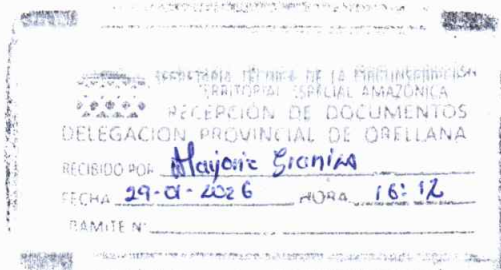 SECRETARÍA TÉCNICA DE LA CIRCUNSCRIPCIÓN
TERRITORIAL ESPECIAL AMAZÓNICA
RECEPCIÓN DE DOCUMENTOS
DELEGACION PROVINCIAL DE ORELLANA
RECIBIDO POR Marjorie Graniza
FECHA 29-01-2026 HORA 16:12
TRAMITE N°